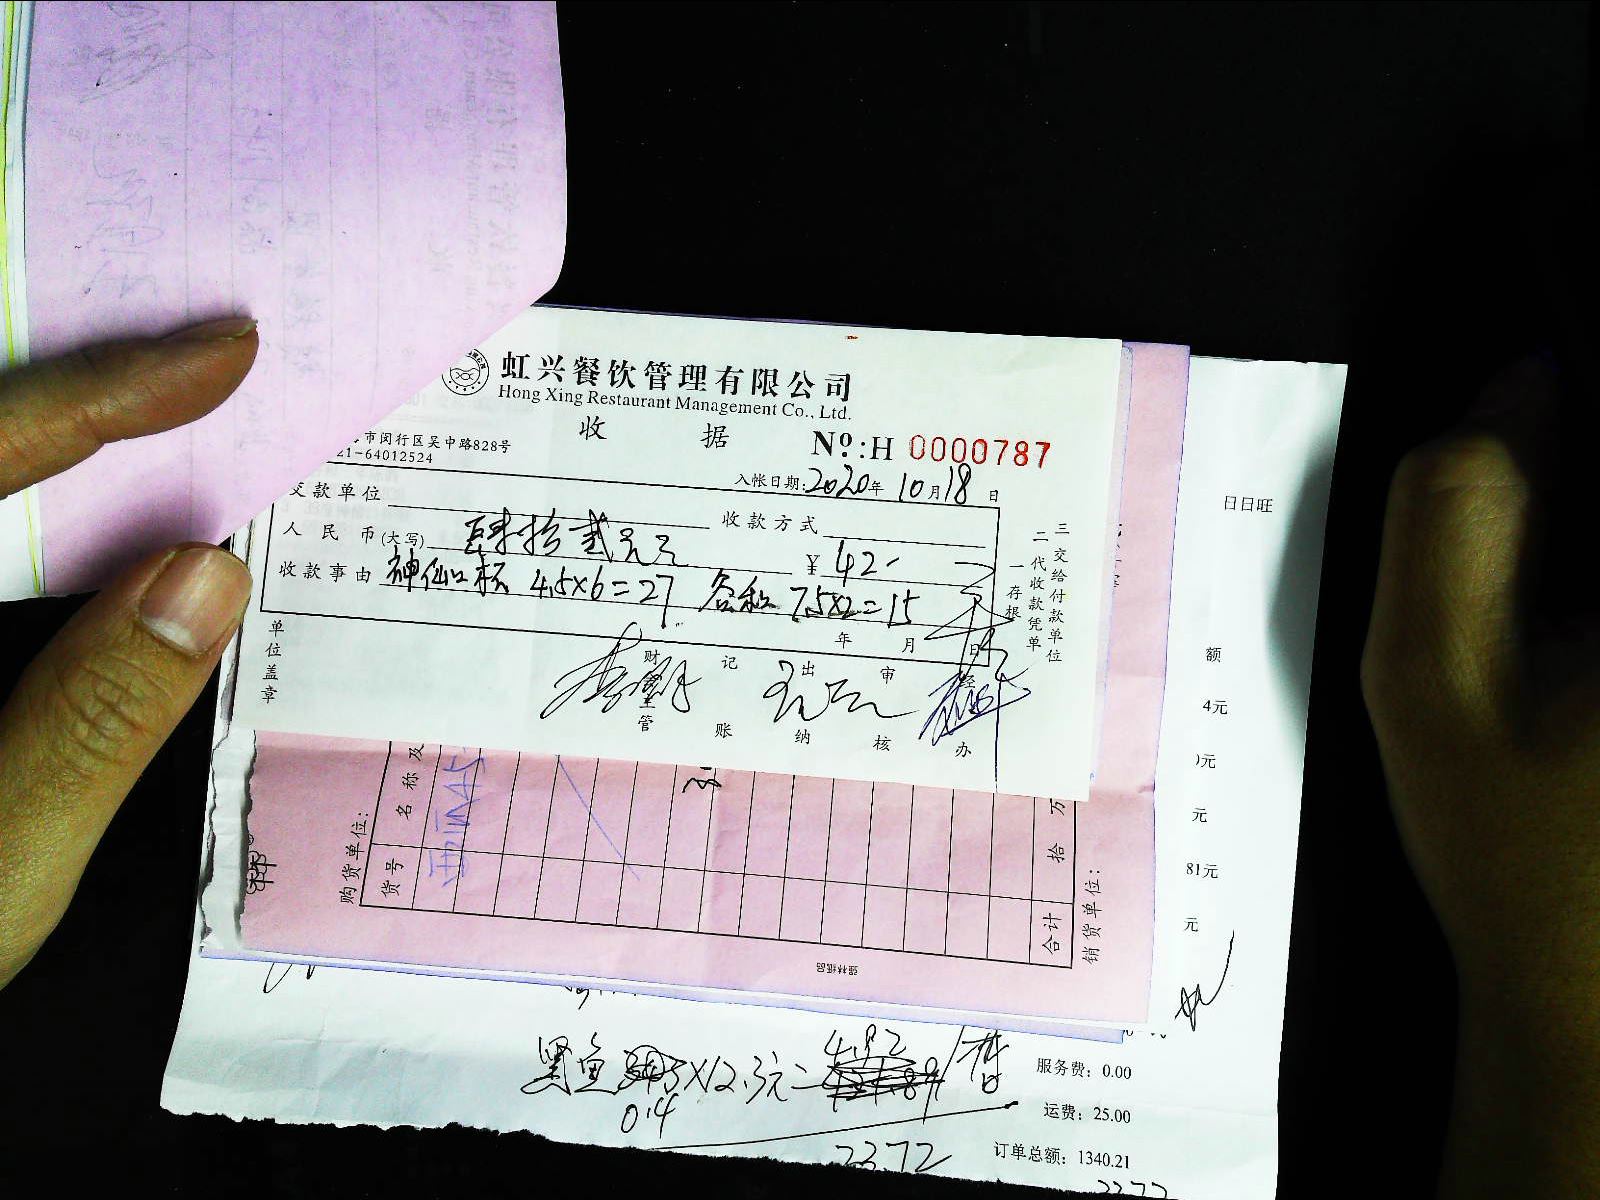 虹兴餐饮管理有限公司
Hong Xing Restaurant Management Co., Ltd.
收 据 Nº:H 0000787
市闵行区吴中路828号
21-64012524
入帐日期:2020年10月18日
交款单位 收款方式
人民币(大写) 肆拾贰元 ¥ 42-
收款事由 神仙 4.5×6=27 7.5×2=15
年 月 日
单位盖章
财 管 记账 出纳 审核 经办
一存根
二代收款凭单
三交给付款单位
购货单位:
货号
名称及
合计
拾
万
销货单位:
强林纸品
日日旺
额
4元
)元
元
81元
元
黑鱼 ×12.3元= 4.92
0.4
服务费: 0.00
运费: 25.00
订单总额: 1340.21
2372
2372